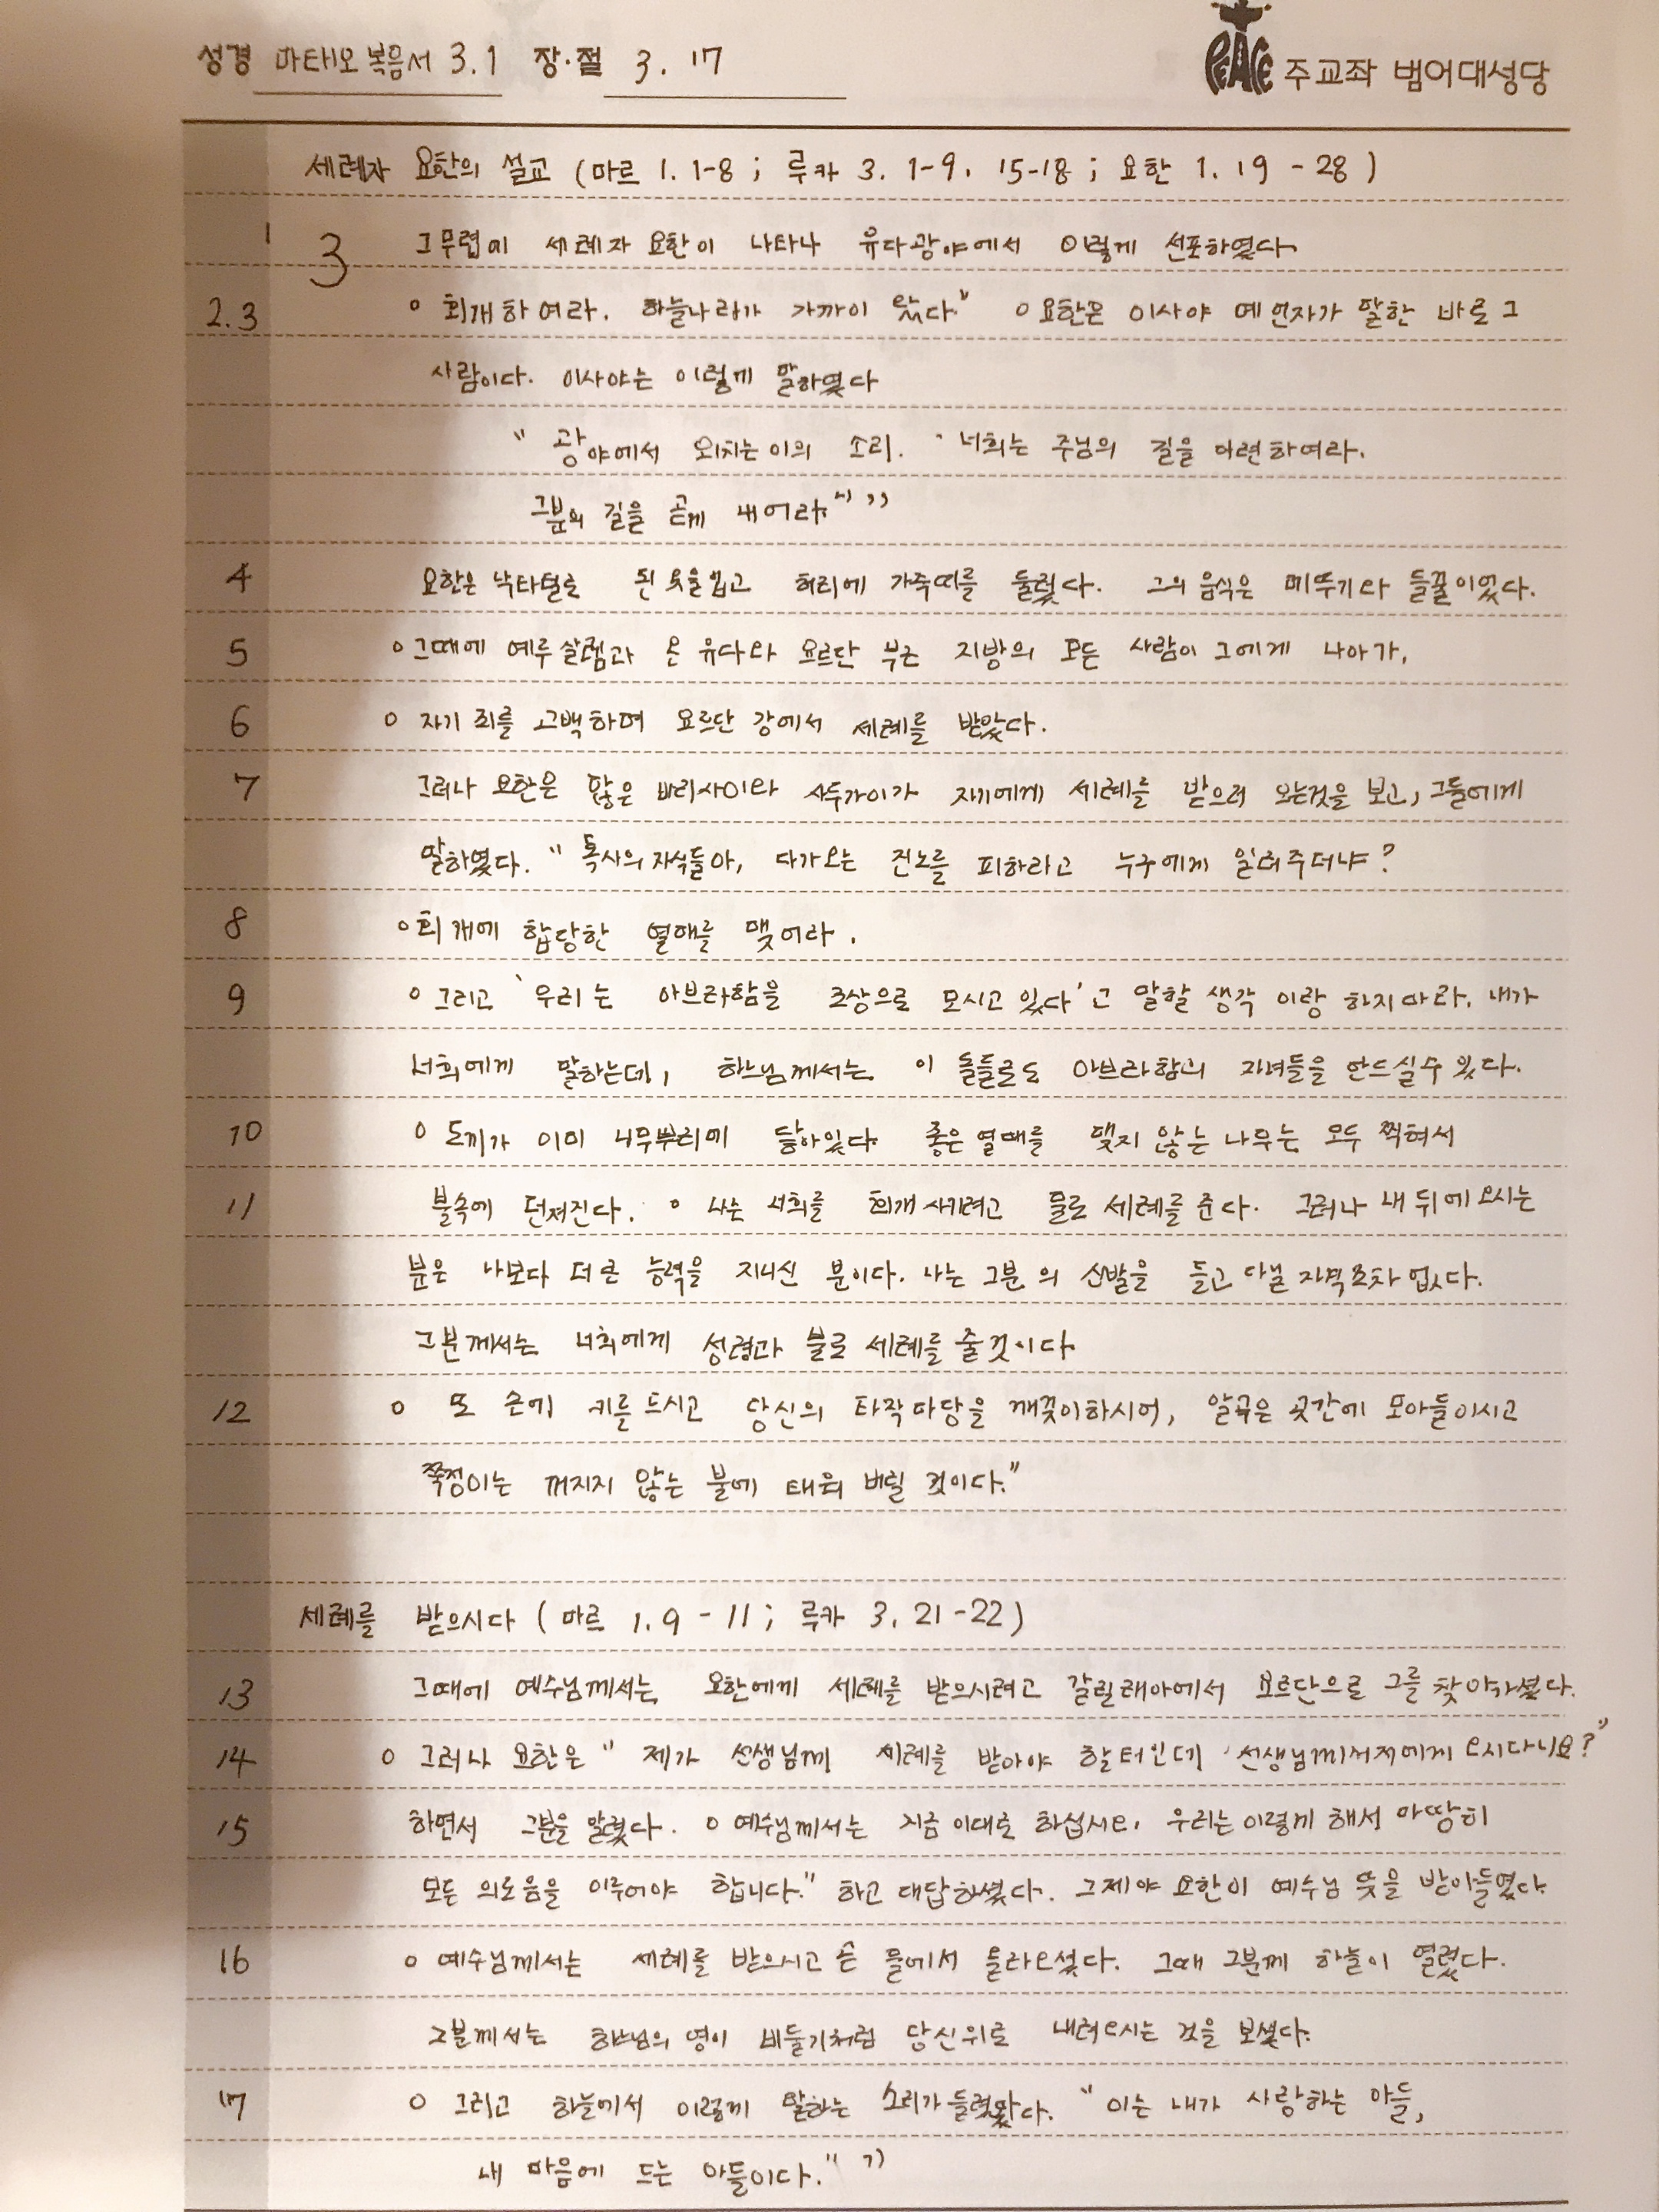 성경 마태오복음서 3.1 장·절 3. 17
PEACE 주교좌 범어대성당
세례자 요한의 설교 (마르 1. 1-8 ; 루카 3. 1-9. 15-18 ; 요한 1. 19 - 28 )
1 3 그무렵에 세례자 요한이 나타나 유다광야에서 이렇게 선포하였다.
2.3 ㅇ 회개하여라. 하늘나라가 가까이 왔다." ㅇ 요한은 이사야 예언자가 말한 바로 그
사람이다. 이사야는 이렇게 말하였다
" 광야에서 외치는이의 소리. ' 너희는 주님의 길을 마련하여라.
그분의 길을 곧게 내어라.' "
4 요한은 낙타털로 된 옷을입고 허리에 가죽띠를 둘렀다. 그의 음식은 메뚜기와 들꿀이었다.
5 ㅇ그때에 예루살렘과 온 유다와 요르단 부근 지방의 모든 사람이 그에게 나아가,
6 ㅇ 자기 죄를 고백하며 요르단 강에서 세례를 받았다.
7 그러나 요한은 많은 바리사이와 사두가이가 자기에게 세례를 받으러 오는것을 보고, 그들에게
말하였다. " 독사의 자식들아, 다가오는 진노를 피하라고 누구에게 일러주더냐?
8 ㅇ회개에 합당한 열매를 맺어라.
9 ㅇ그리고 '우리는 아브라함을 조상으로 모시고 있다'고 말할 생각 이랑 하지마라. 내가
너희에게 말하는데, 하느님께서는 이 돌들로도 아브라함의 자녀들을 만드실수 있다.
10 ㅇ 도끼가 이미 나무뿌리에 닿아있다. 좋은 열매를 맺지 않는 나무는 모두 찍혀서
11 불속에 던져진다. ㅇ 나는 너희를 회개 시키려고 물로 세례를 준다. 그러나 내 뒤에 오시는
분은 나보다 더 큰 능력을 지니신 분이다. 나는 그분의 신발을 들고 다닐 자격조차 없다.
그분께서는 너희에게 성령과 불로 세례를 줄것이다.
12 ㅇ 또 손에 키를 드시고 당신의 타작 마당을 깨끗이하시어, 알곡은 곳간에 모아들이시고
쭉정이는 꺼지지 않는 불에 태워 버릴 것이다."
세례를 받으시다 ( 마르 1. 9 - 11 ; 루카 3. 21-22 )
13 그때에 예수님께서는 요한에게 세례를 받으시려고 갈릴래아에서 요르단으로 그를 찾아가셨다.
14 ㅇ 그러나 요한은 " 제가 선생님께 세례를 받아야 할터인데 선생님께서저에게 오시다니요?"
15 하면서 그분을 말렸다. ㅇ 예수님께서는 지금 이대로 하십시오. 우리는 이렇게 해서 마땅히
모든 의로움을 이루어야 합니다." 하고 대답하셨다. 그제야 요한이 예수님 뜻을 받아들였다.
16 ㅇ 예수님께서는 세례를 받으시고 곧 물에서 올라오셨다. 그때 그분께 하늘이 열렸다.
그분께서는 하느님의 영이 비둘기처럼 당신위로 내려오시는 것을 보셨다.
17 ㅇ 그리고 하늘에서 이렇게 말하는 소리가 들려왔다. " 이는 내가 사랑하는 아들,
내 마음에 드는 아들이다." 7)